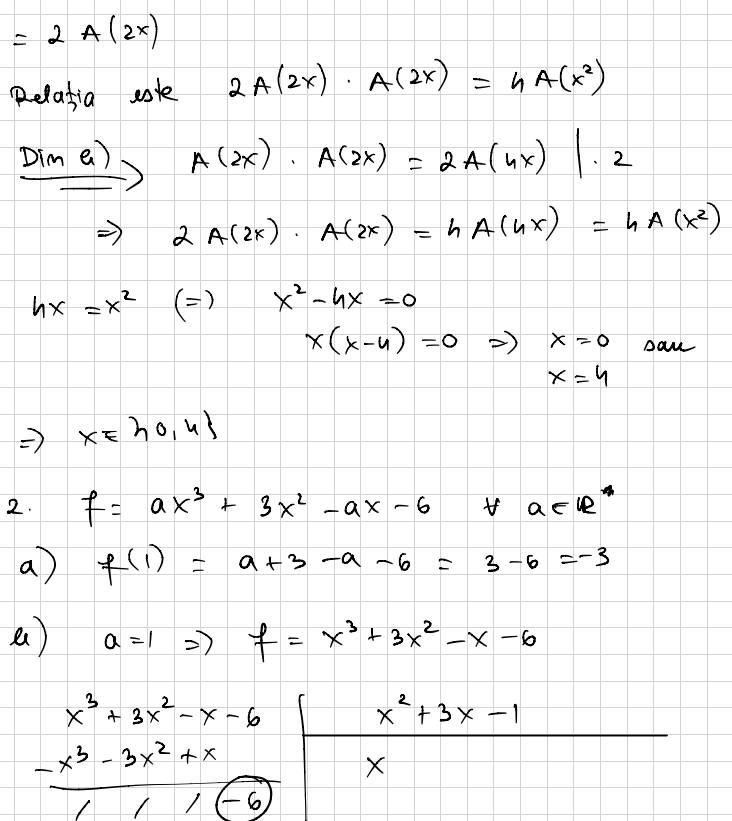 = 2 A(2x)
Relația este 2A(2x) · A(2x) = 4A(x²)
Din b) A(2x) · A(2x) = 2A(4x) | · 2
=> 2A(2x) · A(2x) = 4A(4x) = 4A(x²)
4x = x² (=) x² - 4x = 0
x(x-4) = 0 => x = 0 sau
x = 4
=> x ∈ {0,4}
2. f = ax³ + 3x² - ax - 6 ∀ a ∈ ℝ*
a) f(1) = a + 3 - a - 6 = 3 - 6 = -3
b) a = 1 => f = x³ + 3x² - x - 6
x³ + 3x² - x - 6 | x² + 3x - 1
-x³ - 3x² + x | x
/ / / -6